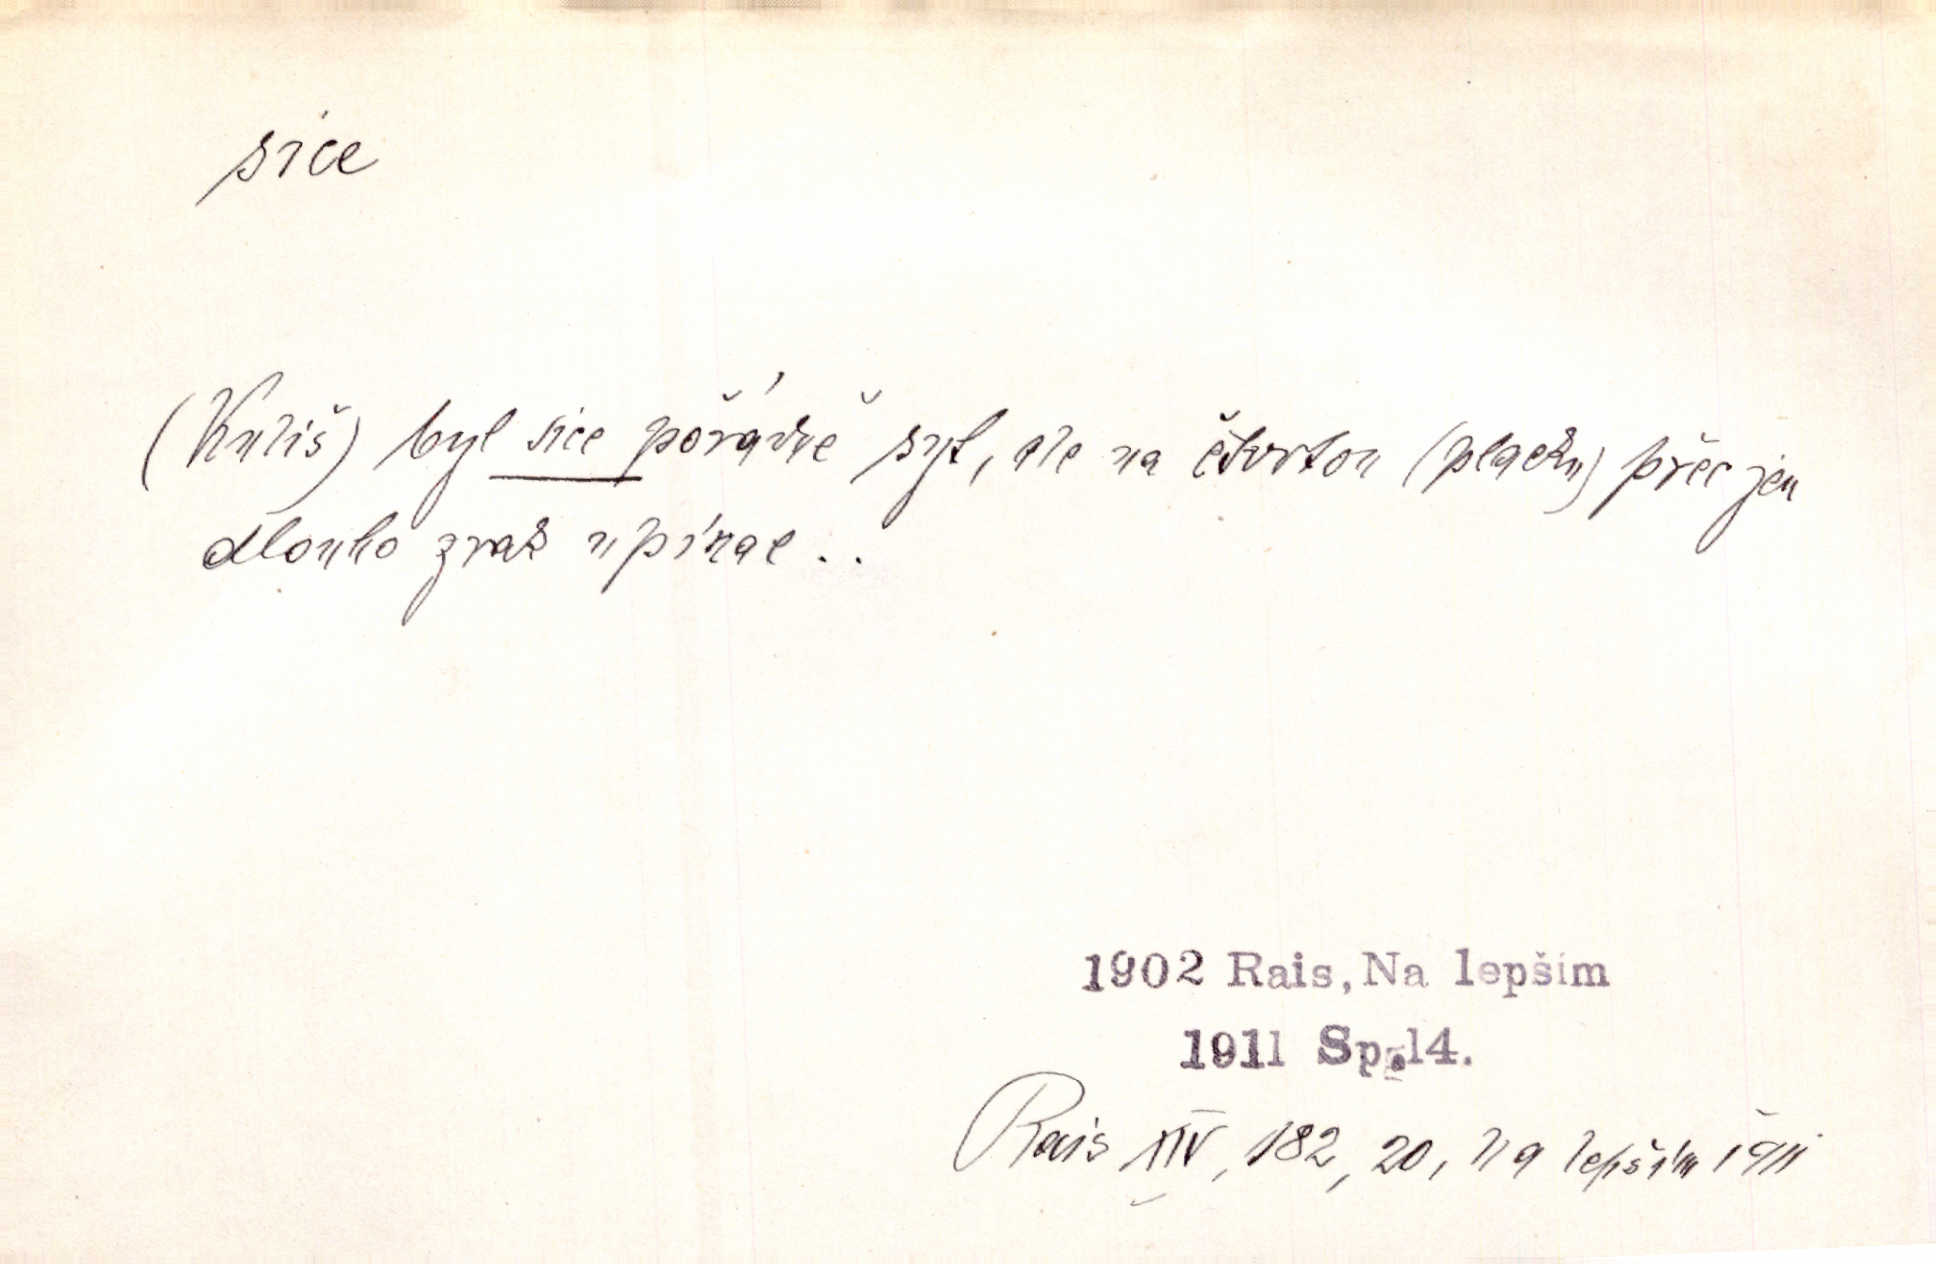 sice
(Kuliš) byl sice pořádně syt, ale na čtvrtou (placku) přec jen
dlouho zrak upíral . .
1902 Rais, Na lepším
1911 Sp.14.
Rais XIV, 182, 20, Na lepším 1911